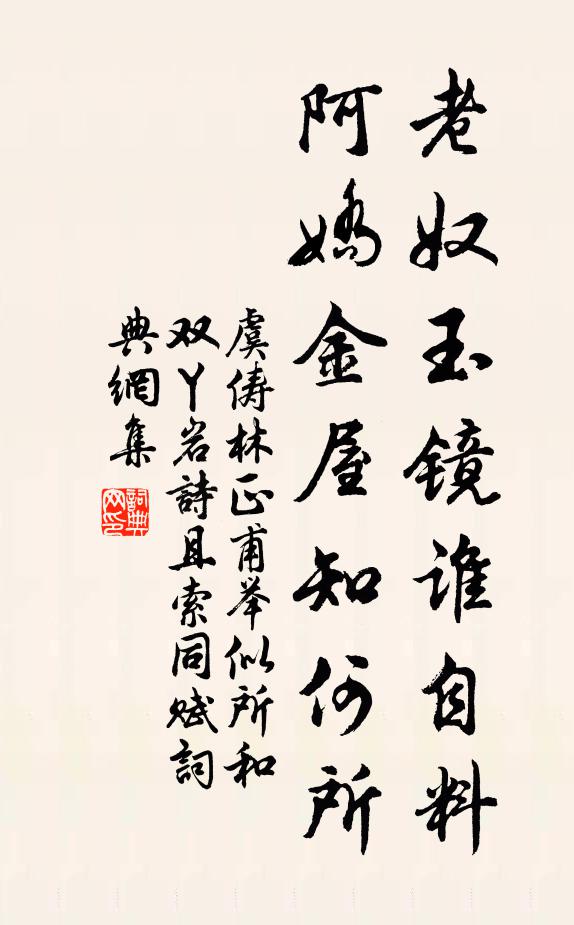 老奴玉镜谁自料
阿嬌金屋知何所
虞俦林正甫举似所和
双丫岩詩且索同赋詞
典網集
詞典网印